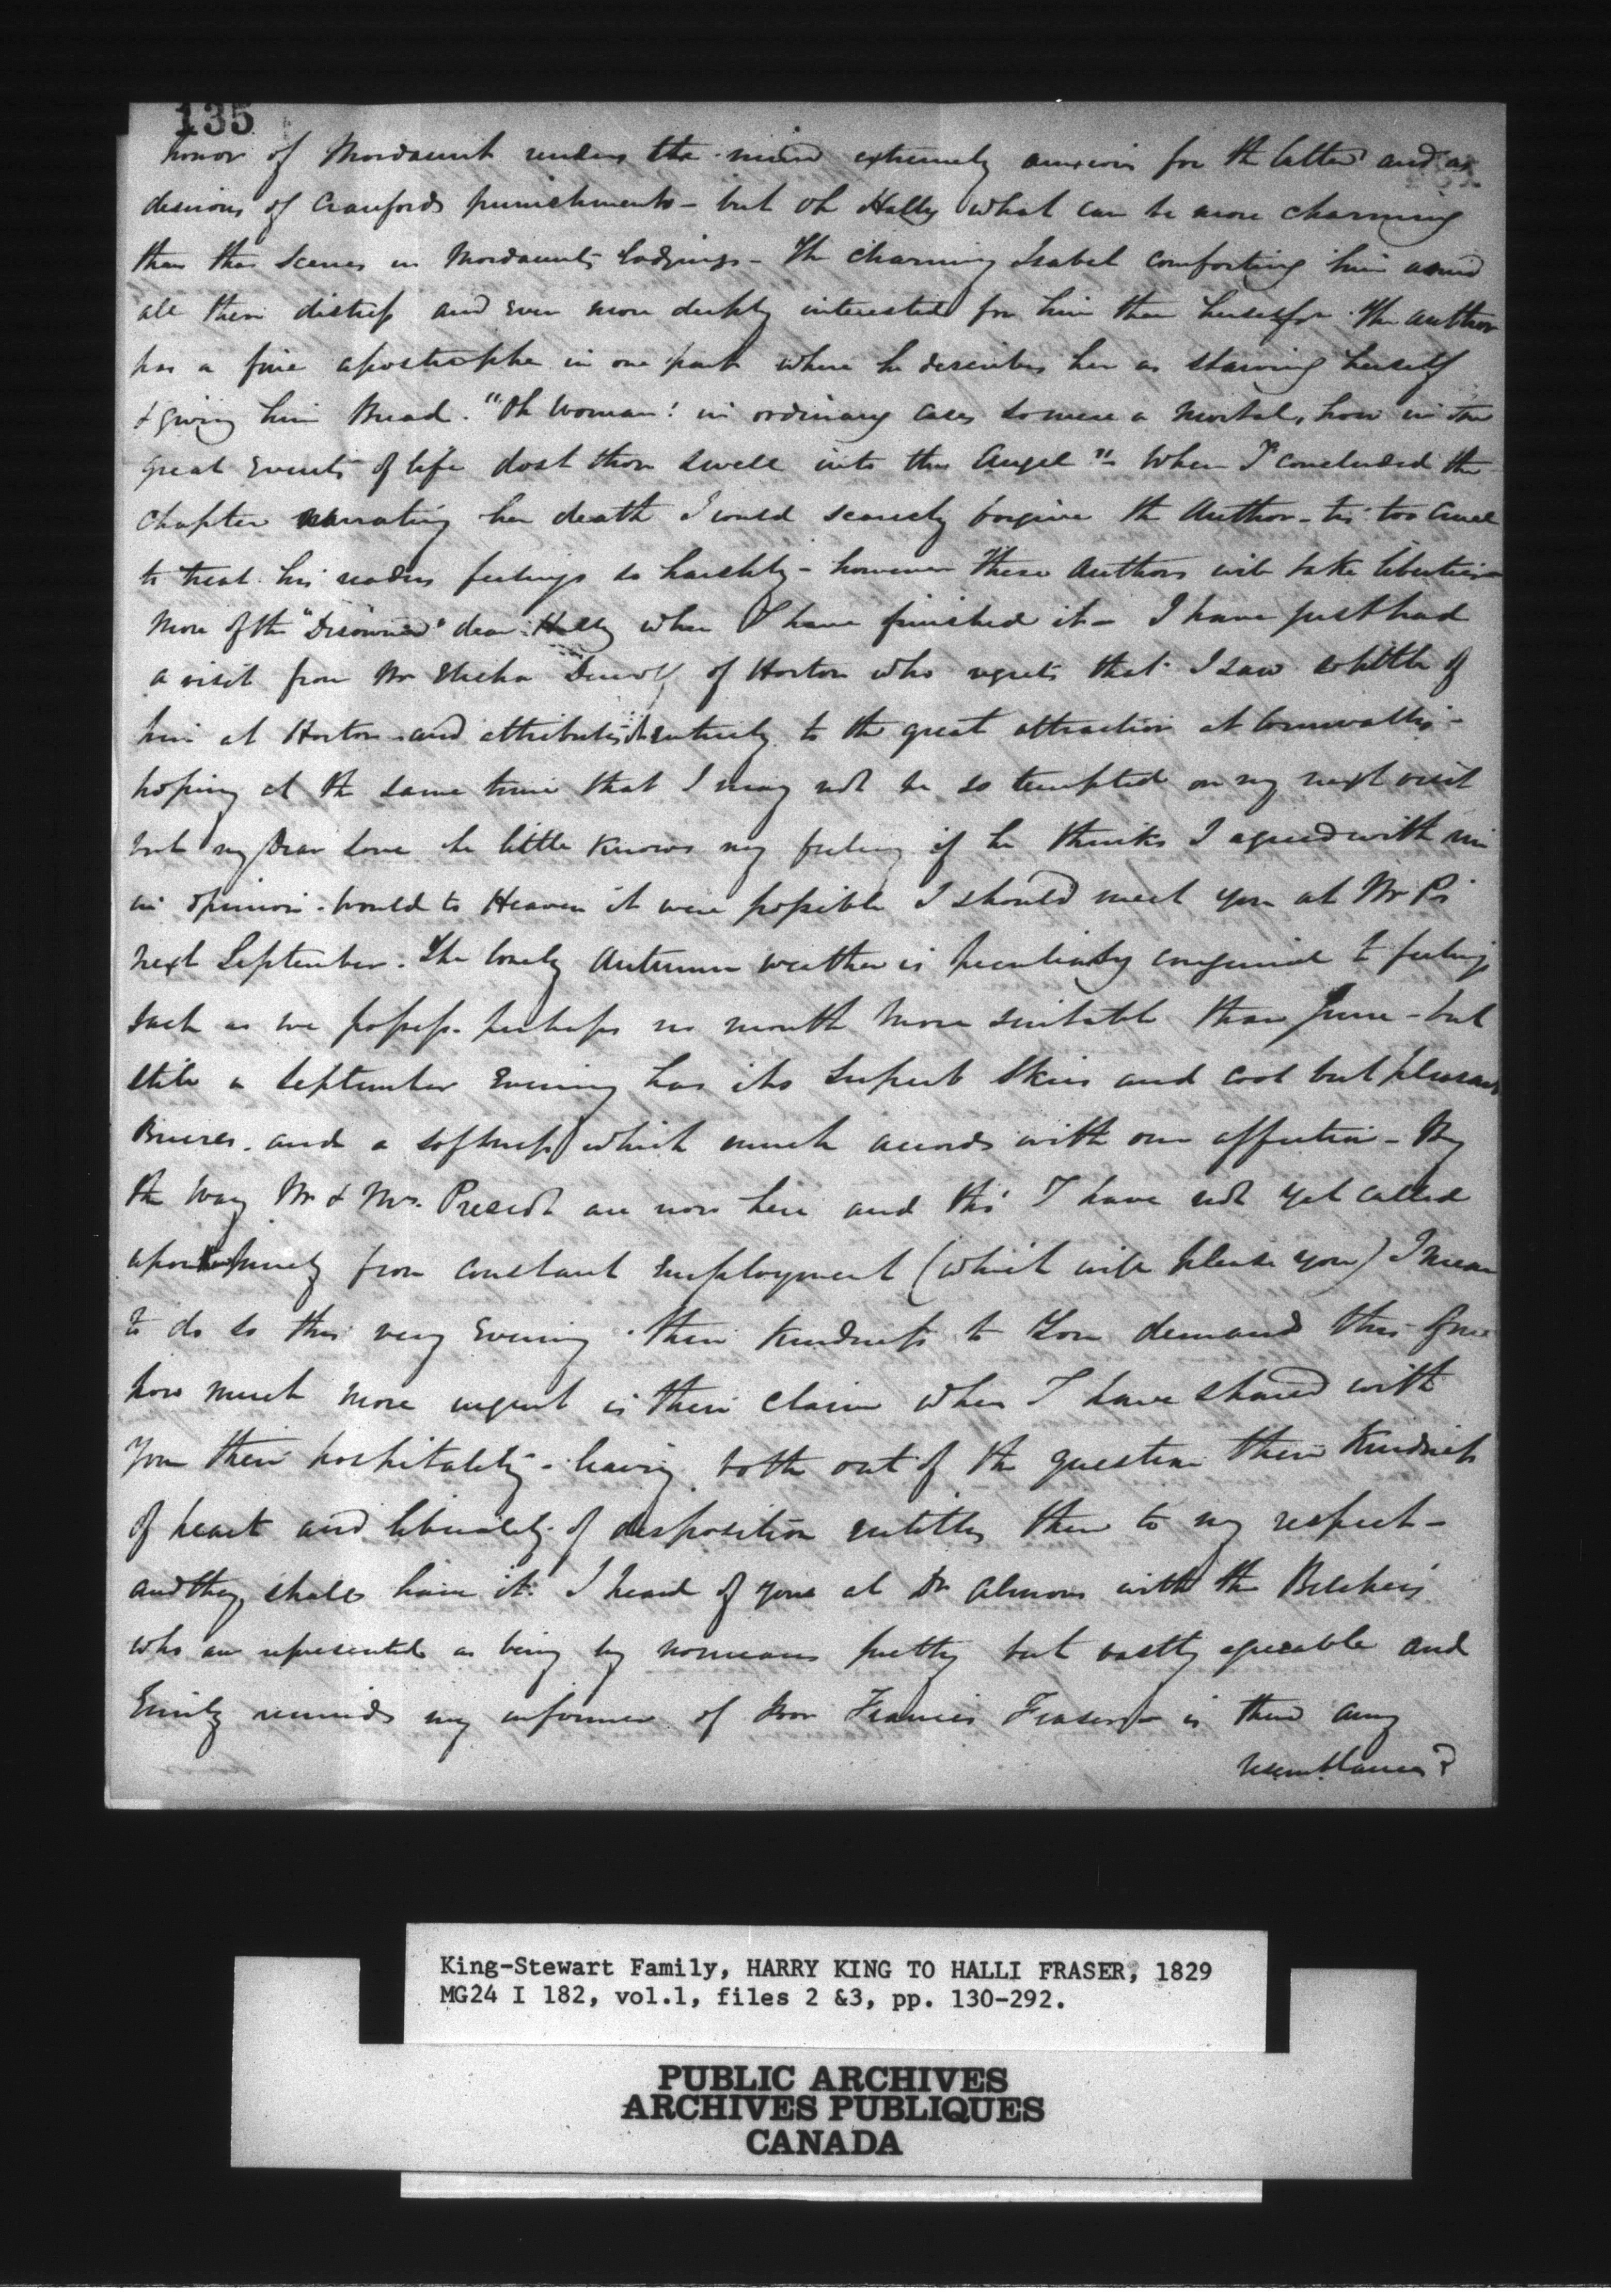 135
honor of Mordaunt renders the mind extremely anxious for the latter and as
desirous of Craufords punishment - but oh Hally what can be more charming
than the scenes in Mordaunts lodgings - The charming Isabel comforting him amid
all their distress and even more deeply interested for him than herself. The author
has a fine apostrophe in one part where he describes her as starving herself
& giving him Bread. "Oh Woman! in ordinary cases so mere a mortal, how in the
great events of life dost thou swell into the Angel" - When I concluded the
Chapter narrating her death I could scarcely forgive the Author - tis too cruel
to treat his readers feelings so harshly - however these Authors will take liberties -
More of the "Disowned" dear Hally when I have finished it - I have just had
a visit from Mr Elisha Dewolf of Horton who regrets that I saw so little of
him at Horton and attributes it entirely to the great attraction at Cornwallis -
hoping at the same time that I may not be so tempted on my next visit
but my Dear Love he little knows my feeling if he thinks I agreed with him
in opinion. would to Heaven it were possible I should meet you at Mr P's
next September. The lovely Autumn weather is peculiarly congenial to feelings
such as we possess. perhaps no month more suitable than June - but
still a September Evening has its superb skies and cool but pleasant
Breezes. and a softness which much accords with our affection - By
the way Mr & Mrs. Prescott are now here and tho' I have not yet called
upon purely from constant employment (which will please you) I mean
to do so this very Evening. their kindness to you demand this from
how much more urgent is their claim when I have shared with
you their hospitality - leaving both out of the question their kindness
of heart and liberality of disposition entitles them to my respect -
and they shall have it. I heard of you at Dr Almons with the Belchers
who are represented as being by no means pretty but vastly agreeable and
Emily reminds my informer of Francis Fraser - is there any
resemblance?
King-Stewart Family, HARRY KING TO HALLI FRASER, 1829
MG24 I 182, vol.1, files 2 &3, pp. 130-292.
PUBLIC ARCHIVES
ARCHIVES PUBLIQUES
CANADA